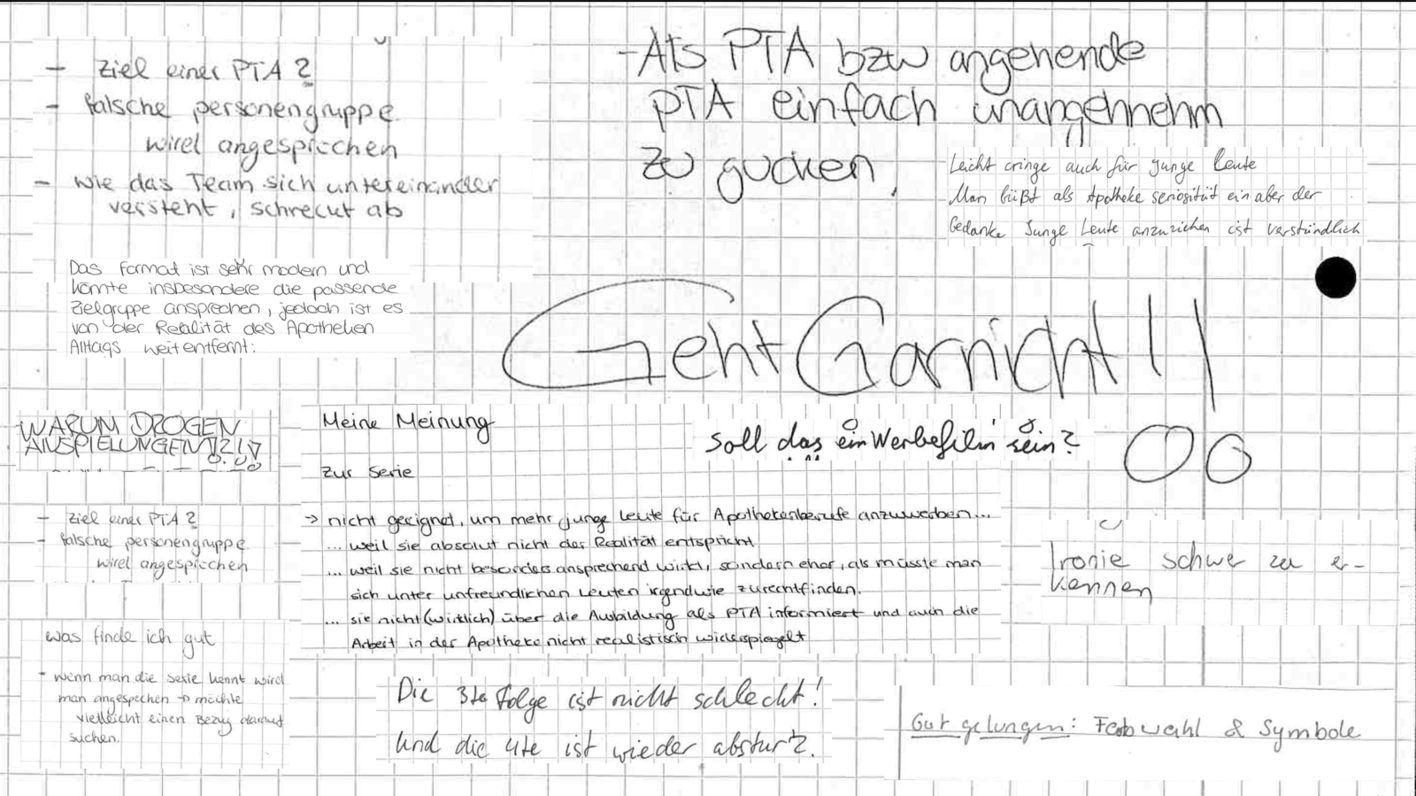 - Ziel einer PTA?
- falsche personengruppe
wird angesprochen
- wie das Team sich untereinander
versteht, schreckt ab
- Als PTA bzw angehende
PTA einfach unangehnehm
zu gucken.
Leicht cringe auch für Junge Leute
Man büßt als Apotheke seriosität ein aber der
Gedanke Junge Leute anzuziehen ist verständlich
Das Format ist sehr modern und
könnte insbesondere die passende
Zielgruppe ansprechen, jedoch ist es
von der Realität des Apotheken
Alltags weit entfernt.
Geht Garnicht!!
WARUM DROGEN
ANSPIELUNGEN?!?!
Meine Meinung
zur Serie
→ nicht geeignet, um mehr junge Leute für Apothekenberufe anzuwerben...
... weil sie absolut nicht der Realität entspricht
... weil sie nicht besonders ansprechend wirkt, sondern eher, als müsste man
sich unter unfreundlichen Leuten irgendwie zurechtfinden.
... sie nicht (wirklich) über die Ausbildung als PTA informiert und auch die
Arbeit in der Apotheke nicht realistisch widerspiegelt
Soll das ein Werbefilm sein?
- Ziel einer PTA?
- falsche personengruppe
wird angesprochen
Ironie schwer zu er-
kennen
was finde ich gut
- wenn man die serie kennt wird
man angesprochen → möchte
vielleicht einen Bezug darauf
suchen.
Die 3te Folge ist nicht schlecht!
Und die 4te ist wieder absturz.
Gut gelungen: Farbwahl & Symbole